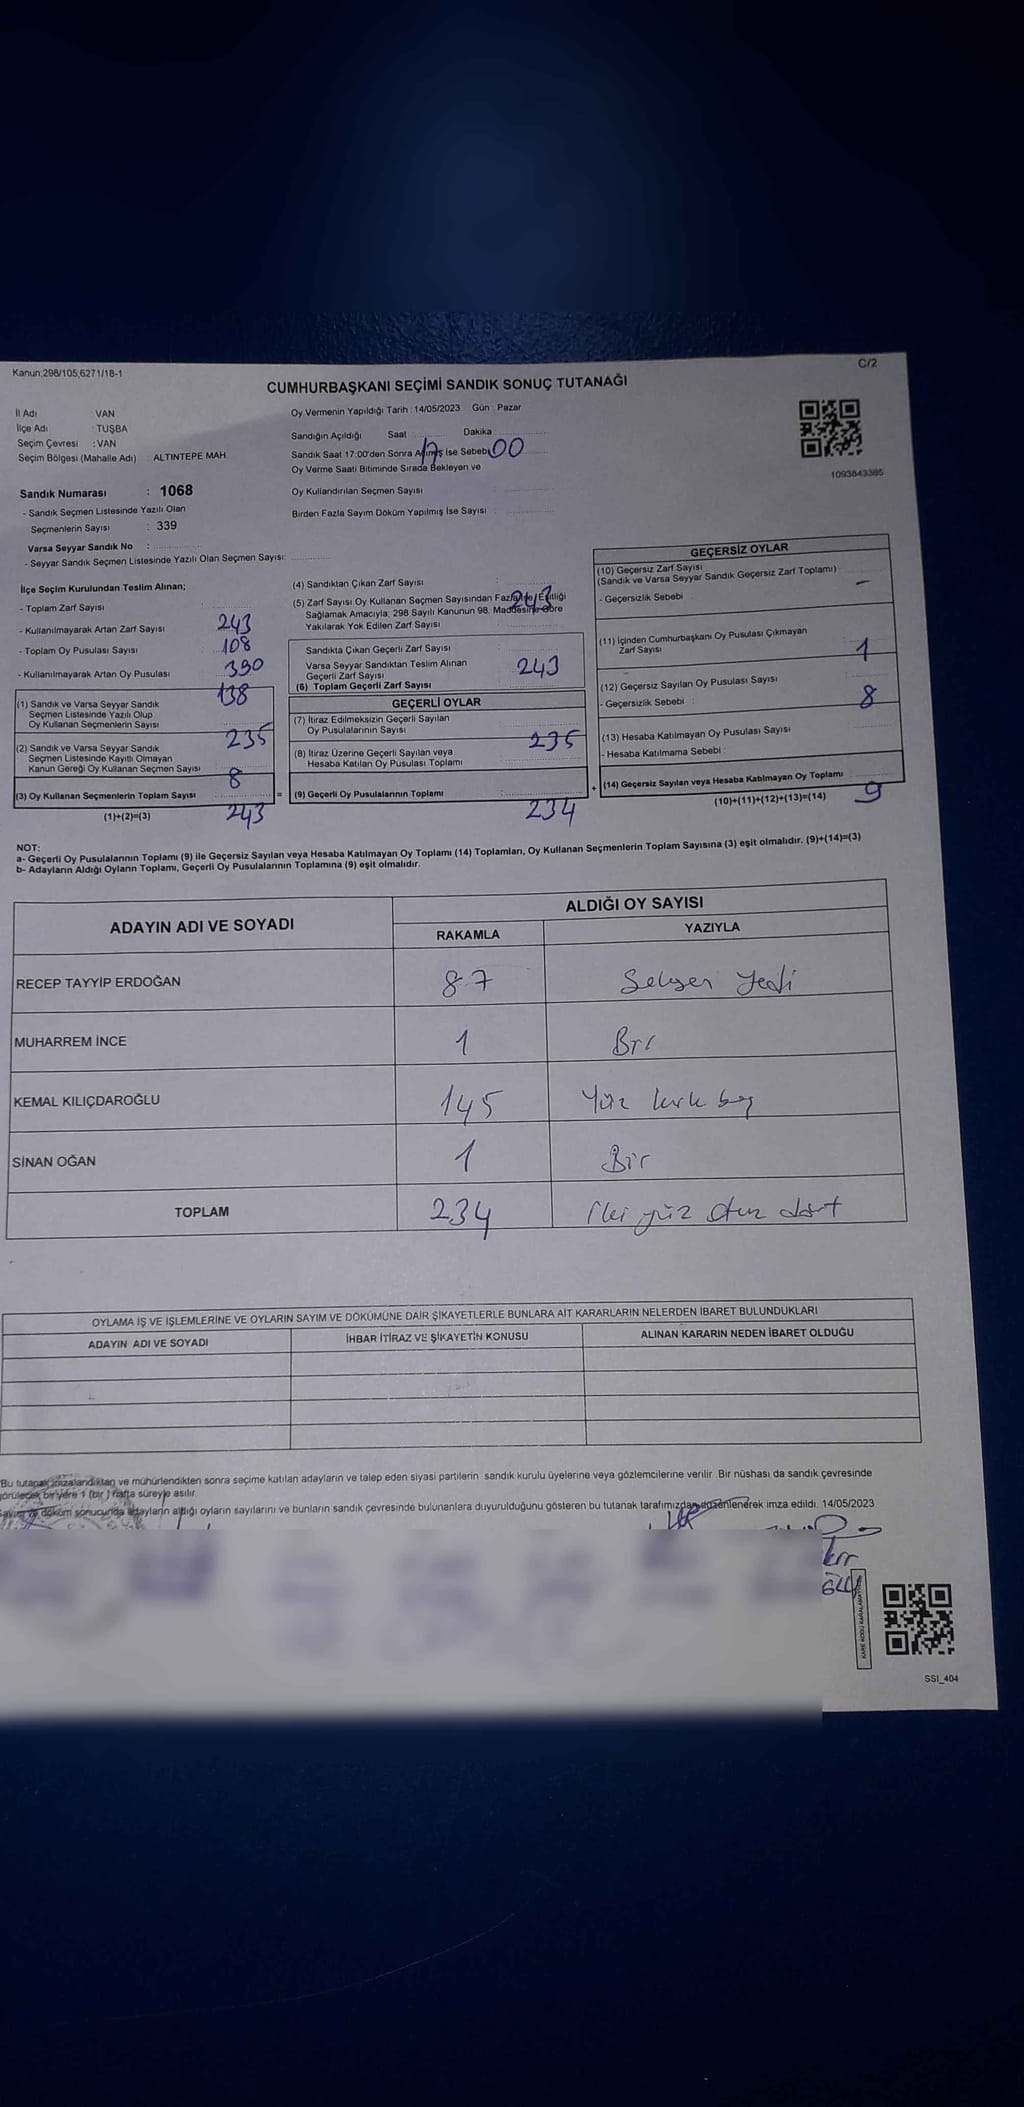 Kanun;298/105,6271/18-1
C/2
CUMHURBAŞKANI SEÇİMİ SANDIK SONUÇ TUTANAĞI
İl Adı : VAN
İlçe Adı : TUŞBA
Seçim Çevresi : VAN
Seçim Bölgesi (Mahalle Adı) : ALTINTEPE MAH.
Sandık Numarası : 1068
- Sandık Seçmen Listesinde Yazılı Olan
Seçmenlerin Sayısı : 339
Varsa Seyyar Sandık No :
- Seyyar Sandık Seçmen Listesinde Yazılı Olan Seçmen Sayısı:
Oy Vermenin Yapıldığı Tarih : 14/05/2023 Gün : Pazar
Sandığın Açıldığı Saat Dakika
17 00
Sandık Saat 17:00'den Sonra Açılmış İse Sebebi
Oy Verme Saati Bitiminde Sırada Bekleyen ve
Oy Kullandırılan Seçmen Sayısı
Birden Fazla Sayım Döküm Yapılmış İse Sayısı :
1093843385
İlçe Seçim Kurulundan Teslim Alınan;
- Toplam Zarf Sayısı
243
- Kullanılmayarak Artan Zarf Sayısı
108
- Toplam Oy Pusulası Sayısı
390
- Kullanılmayarak Artan Oy Pusulası
138
(1) Sandık ve Varsa Seyyar Sandık
Seçmen Listesinde Yazılı Olup
Oy Kullanan Seçmenlerin Sayısı
235
(2) Sandık ve Varsa Seyyar Sandık
Seçmen Listesinde Kayıtlı Olmayan
Kanun Gereği Oy Kullanan Seçmen Sayısı
8
(3) Oy Kullanan Seçmenlerin Toplam Sayısı
(1)+(2)=(3)
243
=
(4) Sandıktan Çıkan Zarf Sayısı :
243
(5) Zarf Sayısı Oy Kullanan Seçmen Sayısından Fazla İse Eşitliği
Sağlamak Amacıyla; 298 Sayılı Kanunun 98. Maddesine Göre
Yakılarak Yok Edilen Zarf Sayısı
Sandıkta Çıkan Geçerli Zarf Sayısı
Varsa Seyyar Sandıktan Teslim Alınan
Geçerli Zarf Sayısı
243
(6) Toplam Geçerli Zarf Sayısı
GEÇERLİ OYLAR
(7) İtiraz Edilmeksizin Geçerli Sayılan
Oy Pusulalarının Sayısı
235
(8) İtiraz Üzerine Geçerli Sayılan veya
Hesaba Katılan Oy Pusulası Toplamı
(9) Geçerli Oy Pusulalarının Toplamı
234
+
GEÇERSİZ OYLAR
(10) Geçersiz Zarf Sayısı
(Sandık ve Varsa Seyyar Sandık Geçersiz Zarf Toplamı)
-
- Geçersizlik Sebebi :
(11) İçinden Cumhurbaşkanı Oy Pusulası Çıkmayan
Zarf Sayısı
1
(12) Geçersiz Sayılan Oy Pusulası Sayısı
- Geçersizlik Sebebi :
8
(13) Hesaba Katılmayan Oy Pusulası Sayısı
- Hesaba Katılmama Sebebi :
(14) Geçersiz Sayılan veya Hesaba Katılmayan Oy Toplamı
(10)+(11)+(12)+(13)=(14)
9
NOT:
a- Geçerli Oy Pusulalarının Toplamı (9) ile Geçersiz Sayılan veya Hesaba Katılmayan Oy Toplamı (14) Toplamları, Oy Kullanan Seçmenlerin Toplam Sayısına (3) eşit olmalıdır. (9)+(14)=(3)
b- Adayların Aldığı Oyların Toplamı, Geçerli Oy Pusulalarının Toplamına (9) eşit olmalıdır.
ADAYIN ADI VE SOYADI
ALDIĞI OY SAYISI
RAKAMLA YAZIYLA
RECEP TAYYİP ERDOĞAN 87 Seksen Yedi
MUHARREM İNCE 1 Bir
KEMAL KILIÇDAROĞLU 145 Yüz kırk beş
SİNAN OĞAN 1 Bir
TOPLAM 234 İki yüz otuz dört
OYLAMA İŞ VE İŞLEMLERİNE VE OYLARIN SAYIM VE DÖKÜMÜNE DAİR ŞİKAYETLERLE BUNLARA AİT KARARLARIN NELERDEN İBARET BULUNDUKLARI
ADAYIN ADI VE SOYADI İHBAR İTİRAZ VE ŞİKAYETİN KONUSU ALINAN KARARIN NEDEN İBARET OLDUĞU
Bu tutanak imzalandıktan ve mühürlendikten sonra seçime katılan adayların ve talep eden siyasi partilerin sandık kurulu üyelerine veya gözlemcilerine verilir. Bir nüshası da sandık çevresinde
görülecek bir yere 1 (bir) hafta süreyle asılır.
Sayım ve döküm sonucunda adayların aldığı oyların sayılarını ve bunların sandık çevresinde bulunanlara duyurulduğunu gösteren bu tutanak tarafımızdan düzenlenerek imza edildi. 14/05/2023
SSI_404